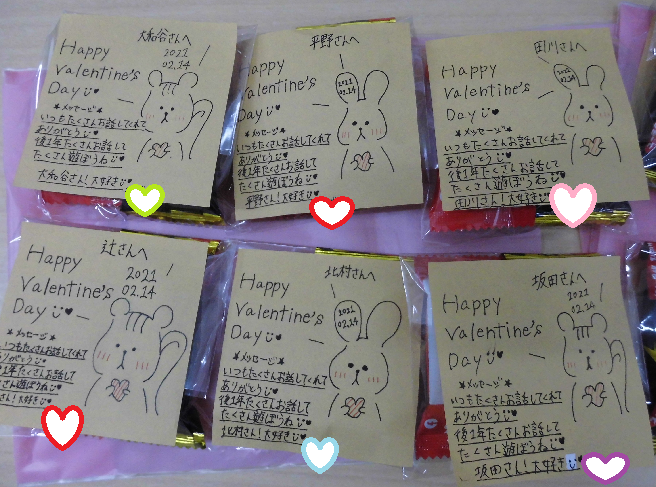 大和谷さんへ
Happy
2021
02.14
Valentine's
Day
*メッセージ*
いつもたくさんお話してくれて
ありがとう
後1年たくさんお話して
たくさん遊ぼうね
大和谷さん!大好き
平野さんへ
Happy
2021
02.14
Valentine's
Day
*メッセージ*
いつもたくさんお話してくれて
ありがとう
後1年たくさんお話して
たくさん遊ぼうね
平野さん!大好き
田川さんへ
Happy
2021
02.14
Valentine's
Day
*メッセージ*
いつもたくさんお話してくれて
ありがとう
後1年たくさんお話して
たくさん遊ぼうね
田川さん!大好き
辻さんへ
Happy
2021
02.14
Valentine's
Day
*メッセージ*
いつもたくさんお話してくれて
ありがとう
後1年たくさんお話して
さん遊ぼうね
さん!大好き
北村さんへ
Happy
2021
02.14
Valentine's
Day
*メッセージ*
いつもたくさんお話してくれて
ありがとう
後1年たくさんお話して
たくさん遊ぼうね
北村さん!大好き
坂田さんへ
Happy
2021
02.14
Valentine's
Day
*メッセージ*
いつもたくさんお話してくれて
ありがとう
後1年たくさんお話して
たくさん遊ぼうね
坂田さん!大好き